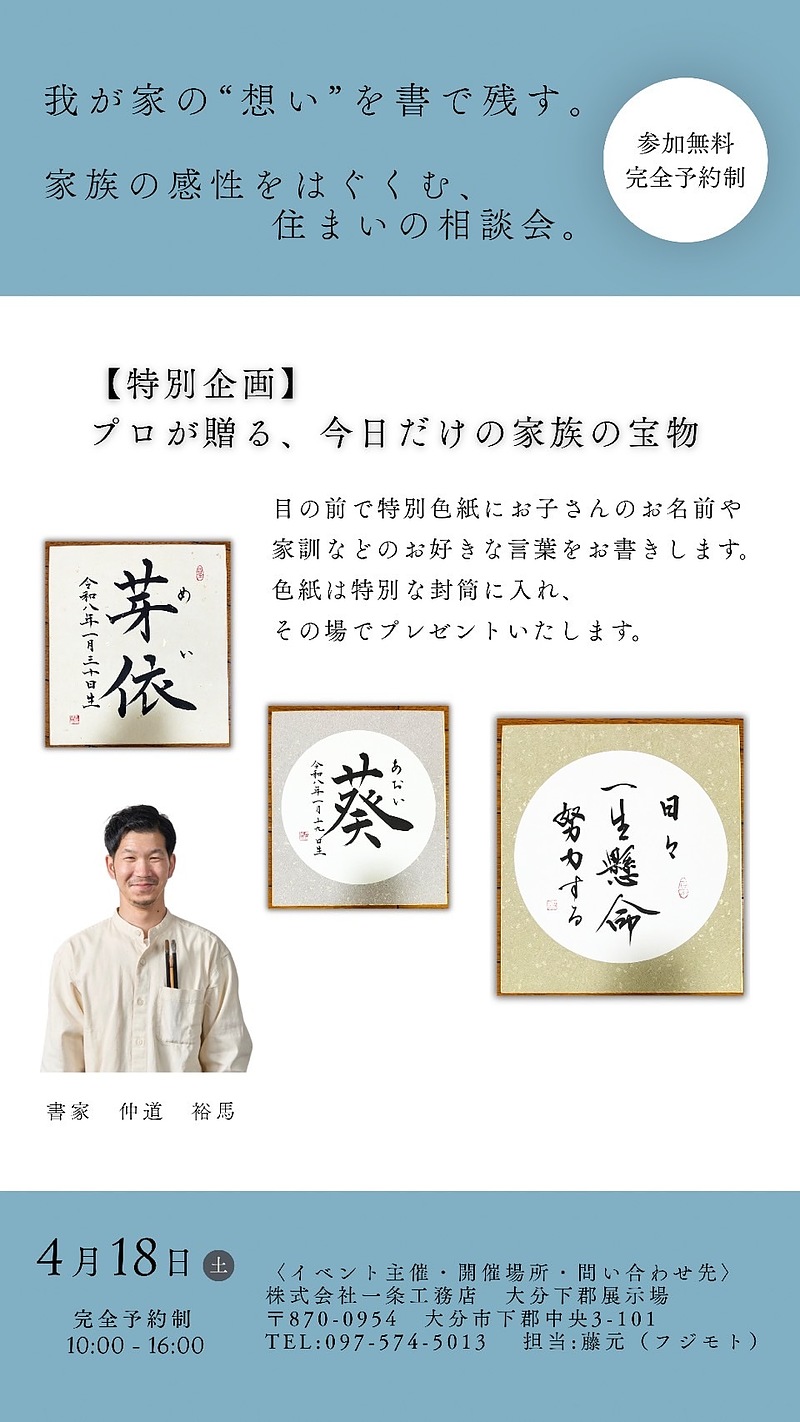 我が家の“想い”を書で残す。
家族の感性をはぐくむ、
住まいの相談会。
参加無料
完全予約制
【特別企画】
プロが贈る、今日だけの家族の宝物
目の前で特別色紙にお子さんのお名前や
家訓などのお好きな言葉をお書きします。
色紙は特別な封筒に入れ、
その場でプレゼントいたします。
芽依
めい
令和八年一月三十日生
葵
あおい
令和八年一月二九日生
日々
一生懸命
努力する
書家 仲道 裕馬
4月18日 土
完全予約制
10:00 - 16:00
〈イベント主催・開催場所・問い合わせ先〉
株式会社一条工務店 大分下郡展示場
〒870-0954 大分市下郡中央3-101
TEL:097-574-5013 担当:藤元（フジモト）